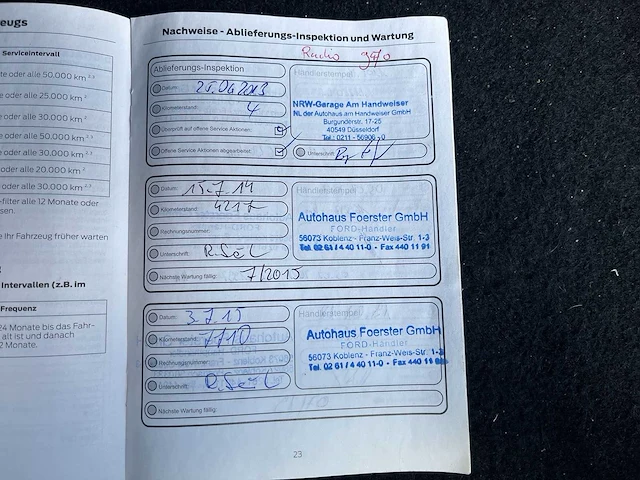 eugs
Serviceintervall
te oder alle 50.000 km 2,3
oder alle 25.000 km 2
oder alle 30.000 km 2
e oder alle 50.000 km 2,3
e oder alle 30.000 km 2,3
oder alle 20.000 km 2
oder alle 30.000 km 2,3
-filter alle 12 Monate oder
sen.
e Ihr Fahrzeug früher warten
Intervallen (z.B. im
Frequenz
24 Monate bis das Fahr-
alt ist und danach
2 Monate.
Nachweise - Ablieferungs-Inspektion und Wartung
Radio
Ablieferungs-Inspektion
Datum:
Kilometerstand: 4
Überprüft auf offene Service Aktionen:
Offene Service Aktionen abgearbeitet:
Händlerstempel
NRW-Garage Am Handweiser
NL der Autohaus am Handweiser GmbH
Burgunderstr. 17-25
40549 Düsseldorf
Tel.: 0211 - 50906 0
Unterschrift:
Datum: 15.7.14
Kilometerstand: 4217
Rechnungsnummer:
Unterschrift:
Nächste Wartung fällig: 7/2015
Händlerstempel
Autohaus Foerster GmbH
FORD-Händler
56073 Koblenz - Franz-Weis-Str. 1-3
Tel. 02 61 / 4 40 11-0 · Fax 440 11 91
Datum: 3.7.15
Kilometerstand: 7710
Rechnungsnummer:
Unterschrift:
Nächste Wartung fällig:
Händlerstempel
Autohaus Foerster GmbH
FORD-Händler
56073 Koblenz - Franz-Weis-Str. 1-3
Tel. 02 61 / 4 40 11-0 · Fax 440 11
23